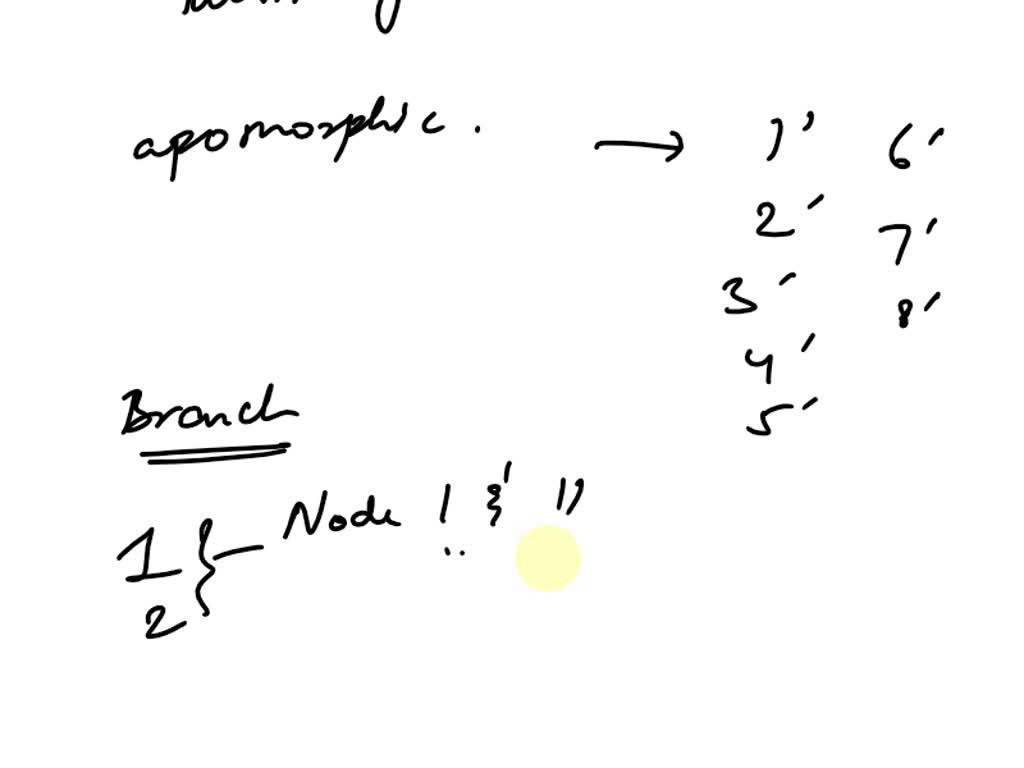 apomorphic. → 1' 6'
2' 7'
3' 8'
4'
5'
Branch
1 } — Node 1 &
2